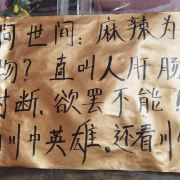 问世间:麻辣为
物?直叫人肝肠
寸断,欲罢不能!
川中英雄,还看川